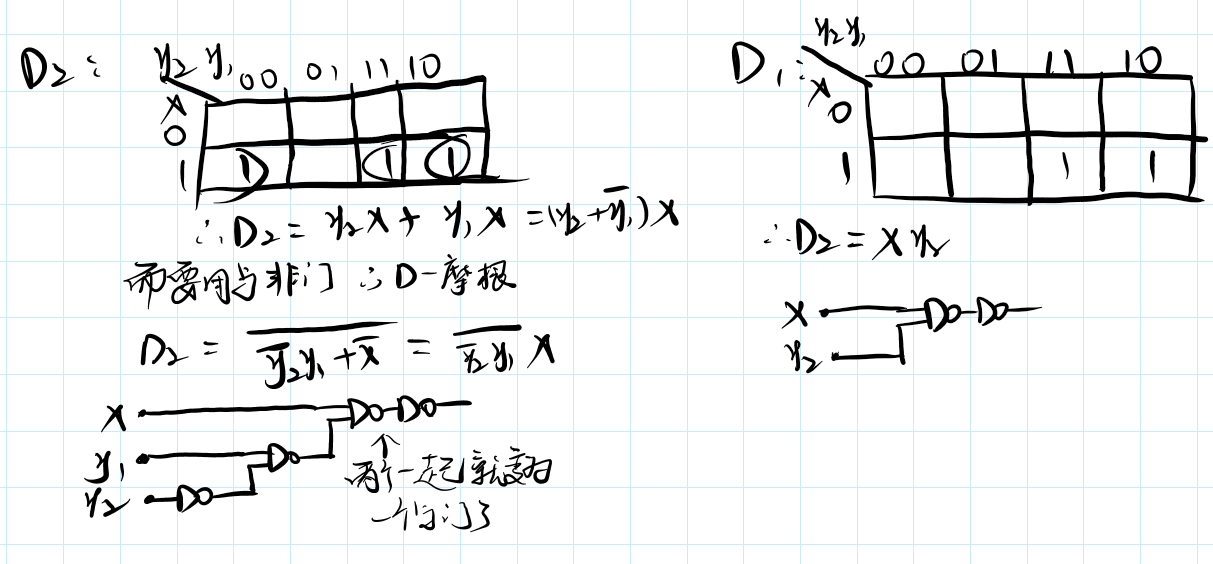 D₂:
y₂ y₁ 00 01 11 10
x
0
1 1 1 1
∴ D₂ = y₂x + y₁x = (y₂+y̅₁)x
而要用与非门 ∴ D-摩根
D₂ = \overline{y̅₂y₁ + x̅} = \overline{y̅₂y₁} x
x
y₁
y₂
↑
两个一起就变为
一个与门了
D₁:
y₂y₁ 00 01 11 10
x
0
1 1 1
∴ D₂ = x y₂
x
y₂